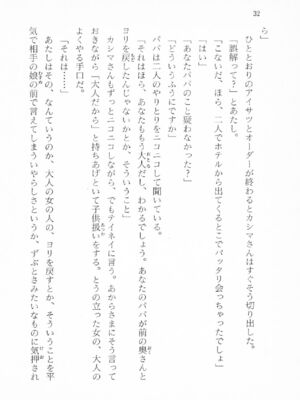 32
ら」
ひととおりのアイサツとオーダーが終わるとカシマさんはすぐそう切り出した。
「誤解って？」とあたし。
「こないだ、ほら、二人でホテルから出てくるとこでバッタリ会っちゃったでしょ」
「はい」
「あなたパパのこと疑わなかった？」
「どういうふうにですか」
パパは二人のやりとりをニコニコして聞いている。
「それはほら、あなたももう大人だし、わかるでしょう。あなたのパパが前の奥さんと
ヨリを戻したんじゃないかとか、そういうこと」
カシマさんもずっとニコニコしながら、でもテイネイに言う。あからさまにそう言って
おきながら「大人だから」と持ちあげといて子供扱いをする。とうの立った女の、大人の
よくやる手口だ。
「それは……」
あたしはその、なんていうのか、大人の女の人の、ヨリを戻すとか、そういうことを平
気で相手の娘の前で言えてしまういやらしさというか、ずぶとさみたいなものに気押され